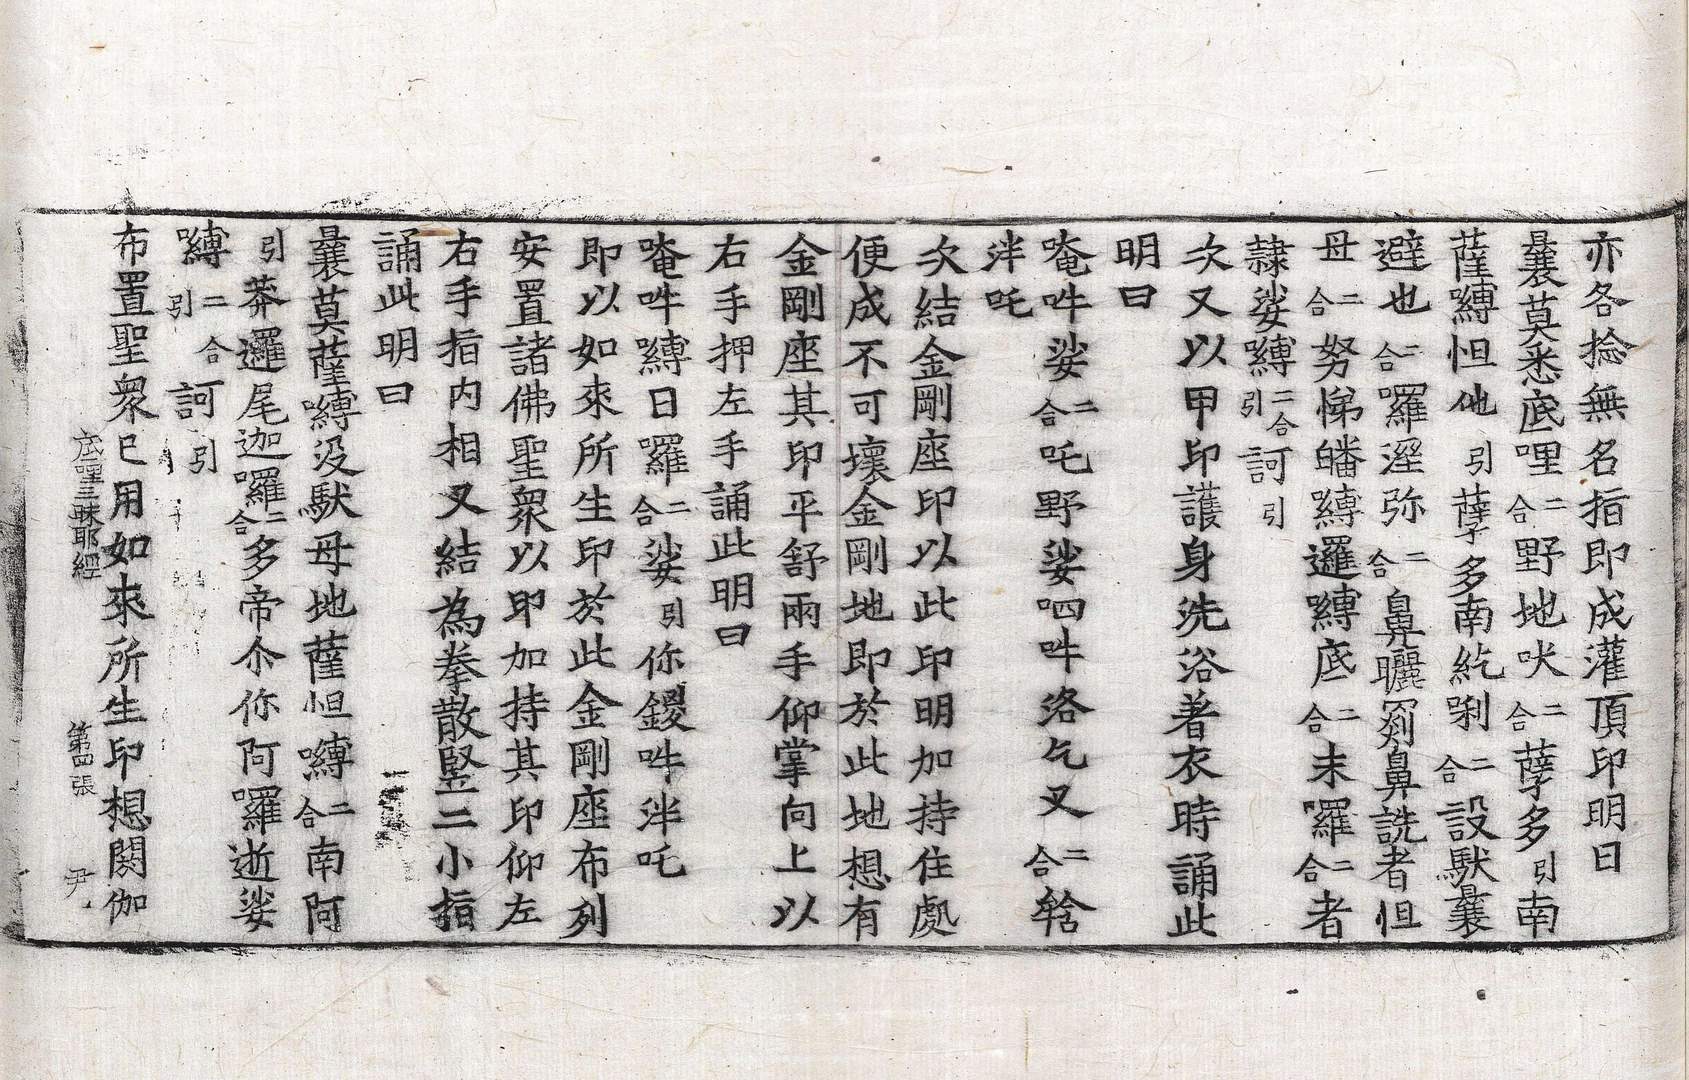 亦各捻無名指即成灌頂印明曰
曩莫悉底哩二合野地吠二合孽多引南
薩嚩怛他引孽多南紇唎二合設馱曩
避也二合囉溼弥二合鼻曬罽鼻詵者怛
母二合努悌皤嚩邏嚩底二合末囉二合者
隷娑嚩二合引訶引
次又以甲印護身洗浴著衣時誦此
明曰
唵吽娑二合吒野娑呬吽洛乞叉二合𤚥
泮吒
次結金剛座印以此印明加持住處
便成不可壞金剛地即於此地想有
金剛座其印平舒兩手仰掌向上以
右手押左手誦此明曰
唵吽嚩日囉二合娑引你鑁吽泮吒
即以如來所生印於此金剛座布列
安置諸佛聖衆以印加持其印仰左
右手指内相叉結為拳散竪二小指
誦此明曰
曩莫薩嚩沒馱母地薩怛嚩二合南阿
引莽邏尾迦囉二合多帝尒你阿囉逝娑
嚩二合引訶引
布置聖衆已用如來所生印想閼伽
底哩三昧耶經 第四張 尹